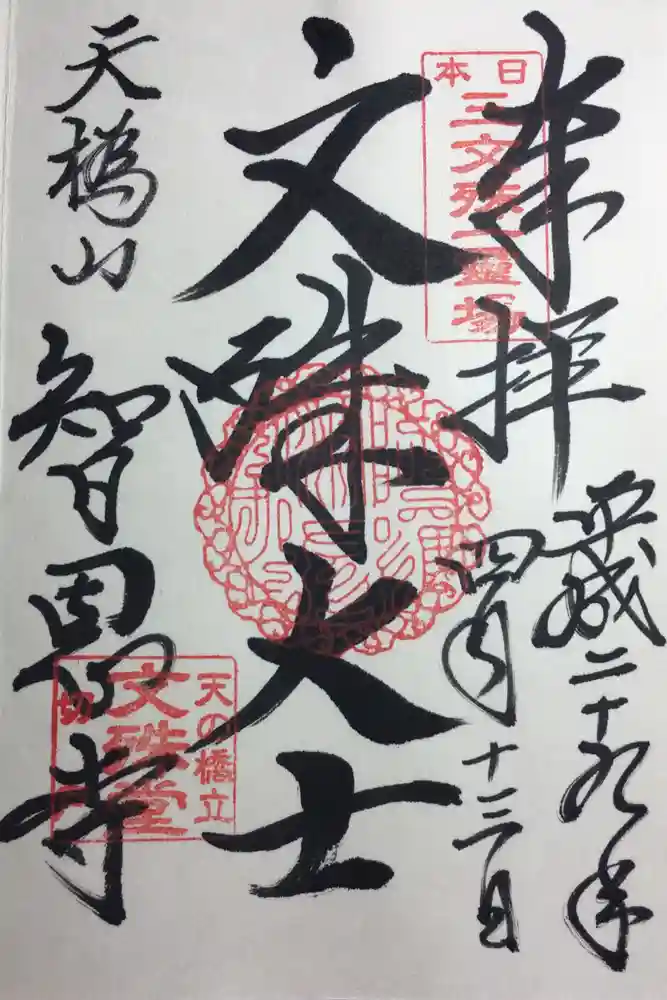 奉拝
日本
三文殊霊場
平成二十九年
四月十三日
文殊大士
天橋山
智恩寺
天の橋立
文殊堂
切戸